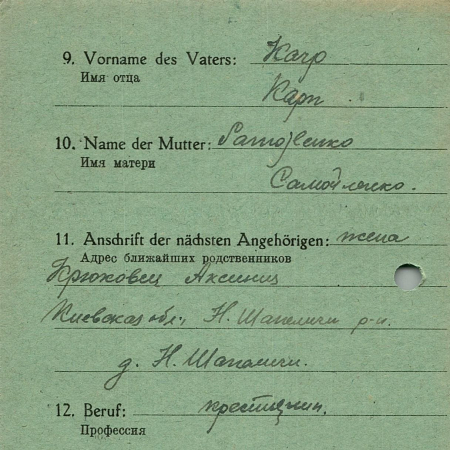 9. Vorname des Vaters: Karp
Имя отца
Карп
10. Name der Mutter: Samojlenko
Имя матери
Самойленко.
11. Anschrift der nächsten Angehörigen: жена
Адрес ближайших родственников
Крюковец Аксиния
Киевская обл., Н. Шапеличи р-н.
д. Н. Шапеличи.
12. Beruf: крестьянин.
Профессия